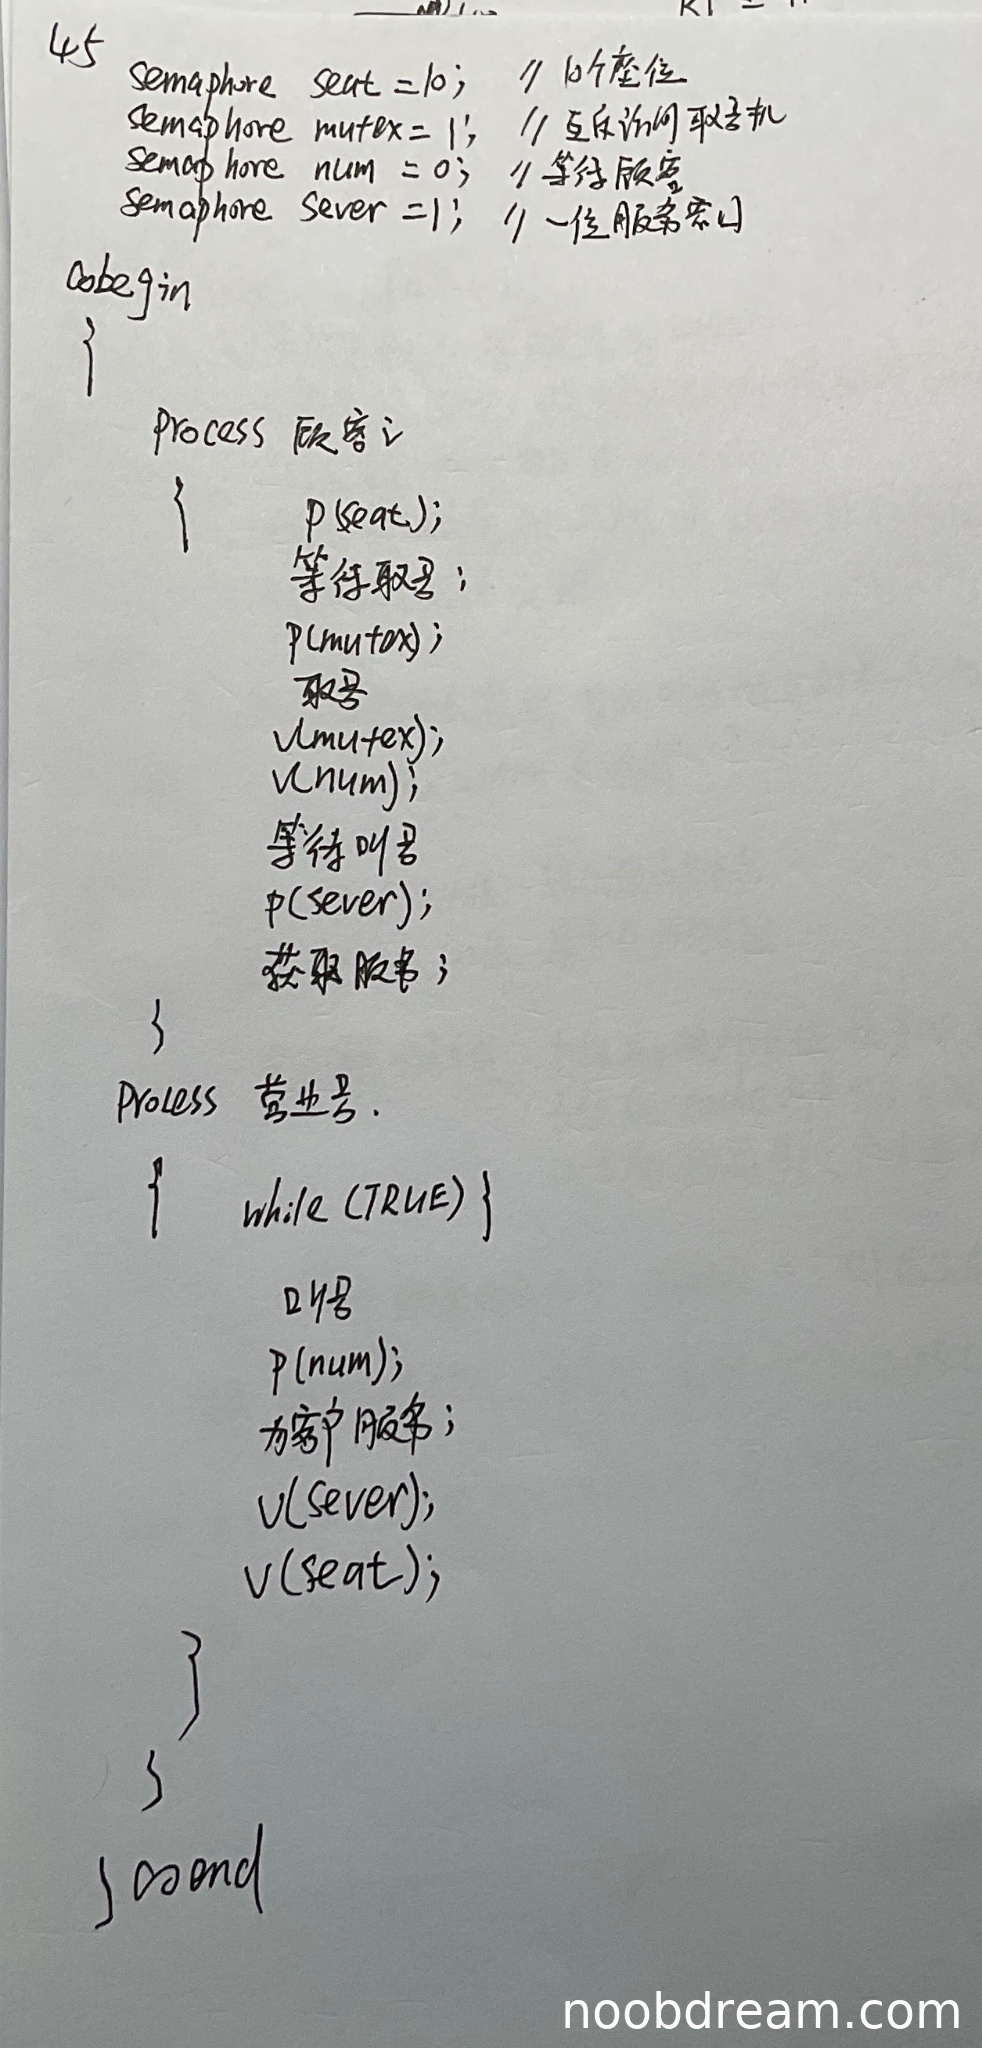 45
semaphore seat = 10; // 10个座位
semaphore mutex = 1; // 互斥访问取号机
semaphore num = 0; // 等待顾客
semaphore sever = 1; // 一位服务窗口
cobegin
{
process 顾客i
{ p(seat);
等待取号;
p(mutex);
取号
v(mutex);
v(num);
等待叫号
p(sever);
获取服务;
}
process 营业号.
{ while (TRUE) {
叫号
p(num);
为客户服务;
v(sever);
v(seat);
}
}
} coend
noobdream.com